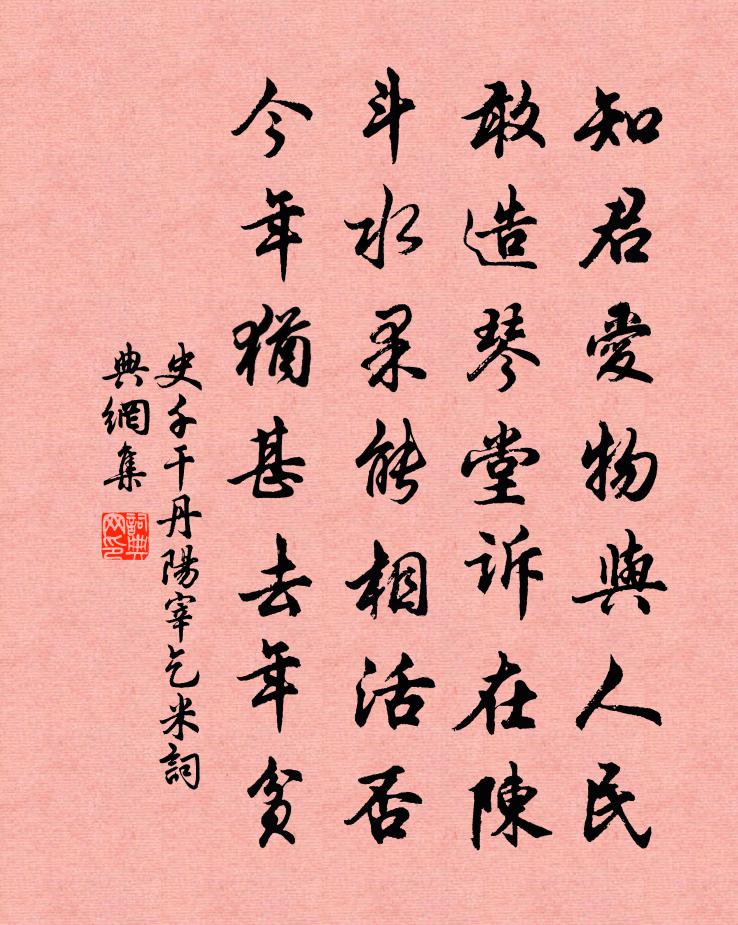 知君愛物與人民
敢造琴堂訴在陳
斗水果能相活否
今年猶甚去年貧
史千干丹陽宰乞米詞
典網集
詞典网印